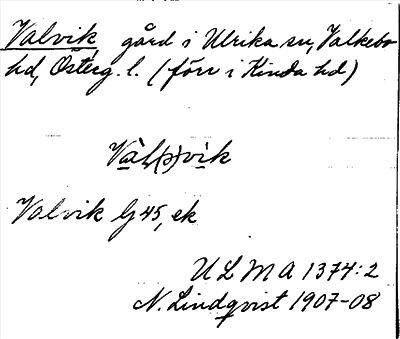 Valvik gård i Ulrika sn, Valkebo
hd, Österg. l. (förr i Kinda hd)
Vàl(p)vik
Valvik Gj 45, ek
ULMA 1374:2
N. Lindqvist 1907-08